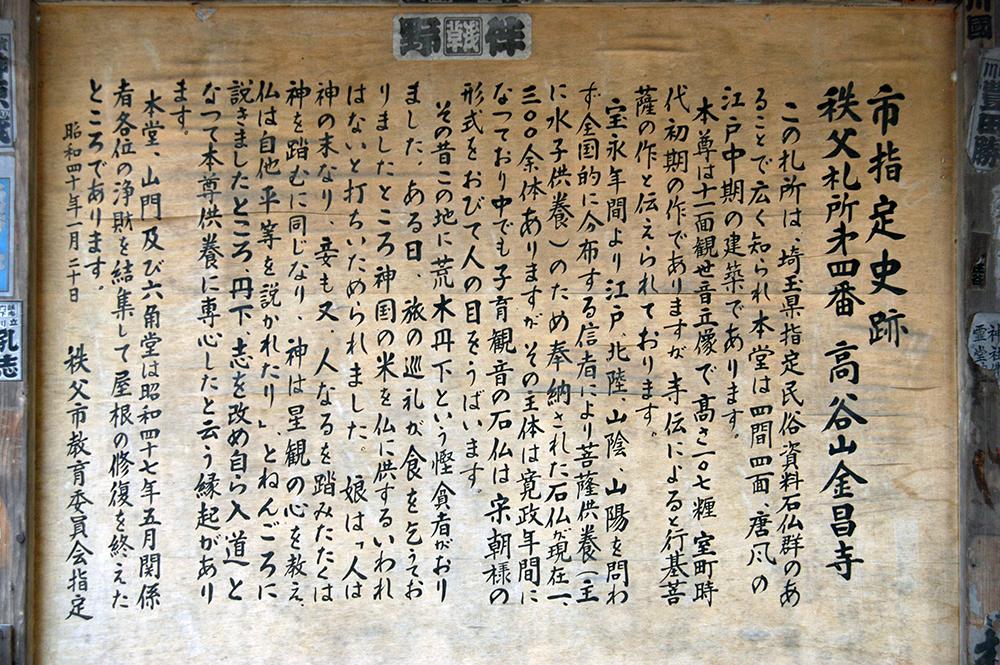 市指定史跡
秩父札所才四番 高谷山金昌寺
この札所は、埼玉県指定民俗資料石仏群のあ
ることで広く知られ本堂は四間四面、唐風の
江戸中期の建築であります。
本尊は十一面観世音立像で高さ一〇七糎 室町時
代初期の作でありますが寺伝によると行基菩
薩の作と伝えられております。
宝永年間より江戸、北陸、山陰、山陽を問わ
ず全国的に分布する信者により菩薩供養(主
に水子供養)のため奉納された石仏が現在一、
三〇〇余体ありますが、その主体は寛政年間に
なつており中でも子育観音の石仏は宋朝様の
形式をおびて人の目をうばいます。
その昔この地に荒木丹下という慳貪者がおり
ました、ある日、旅の巡礼が食を乞うてお
りましたところ神国の米を仏に供するいわれ
はないと打ちいためられました。娘は「人は
神の末なり、妾も又、人なるを踏みたたくは
神を踏むに同じなり、神は星観の心を教え、
仏は自他平等を説かれたり」とねんごろに
説きましたところ、丹下、志を改め自ら入道と
なつて本尊供養に専心したと云う縁起があり
ます。
本堂、山門及び六角堂は昭和四十七年五月関係
者各位の浄財を結集して屋根の修復を終えた
ところであります。
昭和四十年一月二十日
秩父市教育委員会指定
野草浅伴